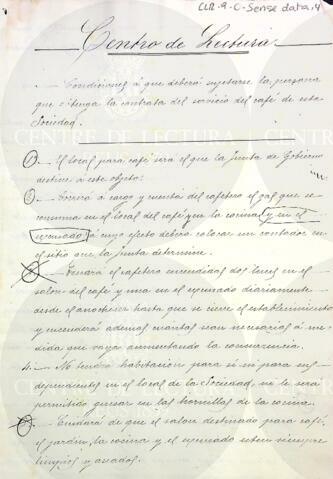 CLR.9.C-Sense data.4
Centro de Lectura
Condiciones á que deberá sujetarse la persona
que obtenga la contrata del servicio del café de esta
Sociedad.
CENTRE DE LECTURA
1 El local para café será el que la Junta de Gobierno
destine á este objeto.
Correrá á cargo y cuenta del cafetero el gas que se
consuma en el local del café, en la cocina y en el
escusado, á cuyo efecto deberá colocar un contador en
el sitio que la Junta determine.
Tendrá el cafetero encendidas dos luces en el
salon del café y una en el escusado diariamente
desde el anochecer hasta que se cierre el establecimiento
y encenderá además cuantas sean necesarias á me-
dida que vaya aumentando la concurrencia.
4. No tendrá habitacion para si ni para sus
dependientes en el local de la Sociedad, ni le será
permitido guisar en las hornillas de la cocina.
Cuidará de que el salon destinado para café,
el jardin, la cocina y el escusado esten siempre
limpios y aseados.